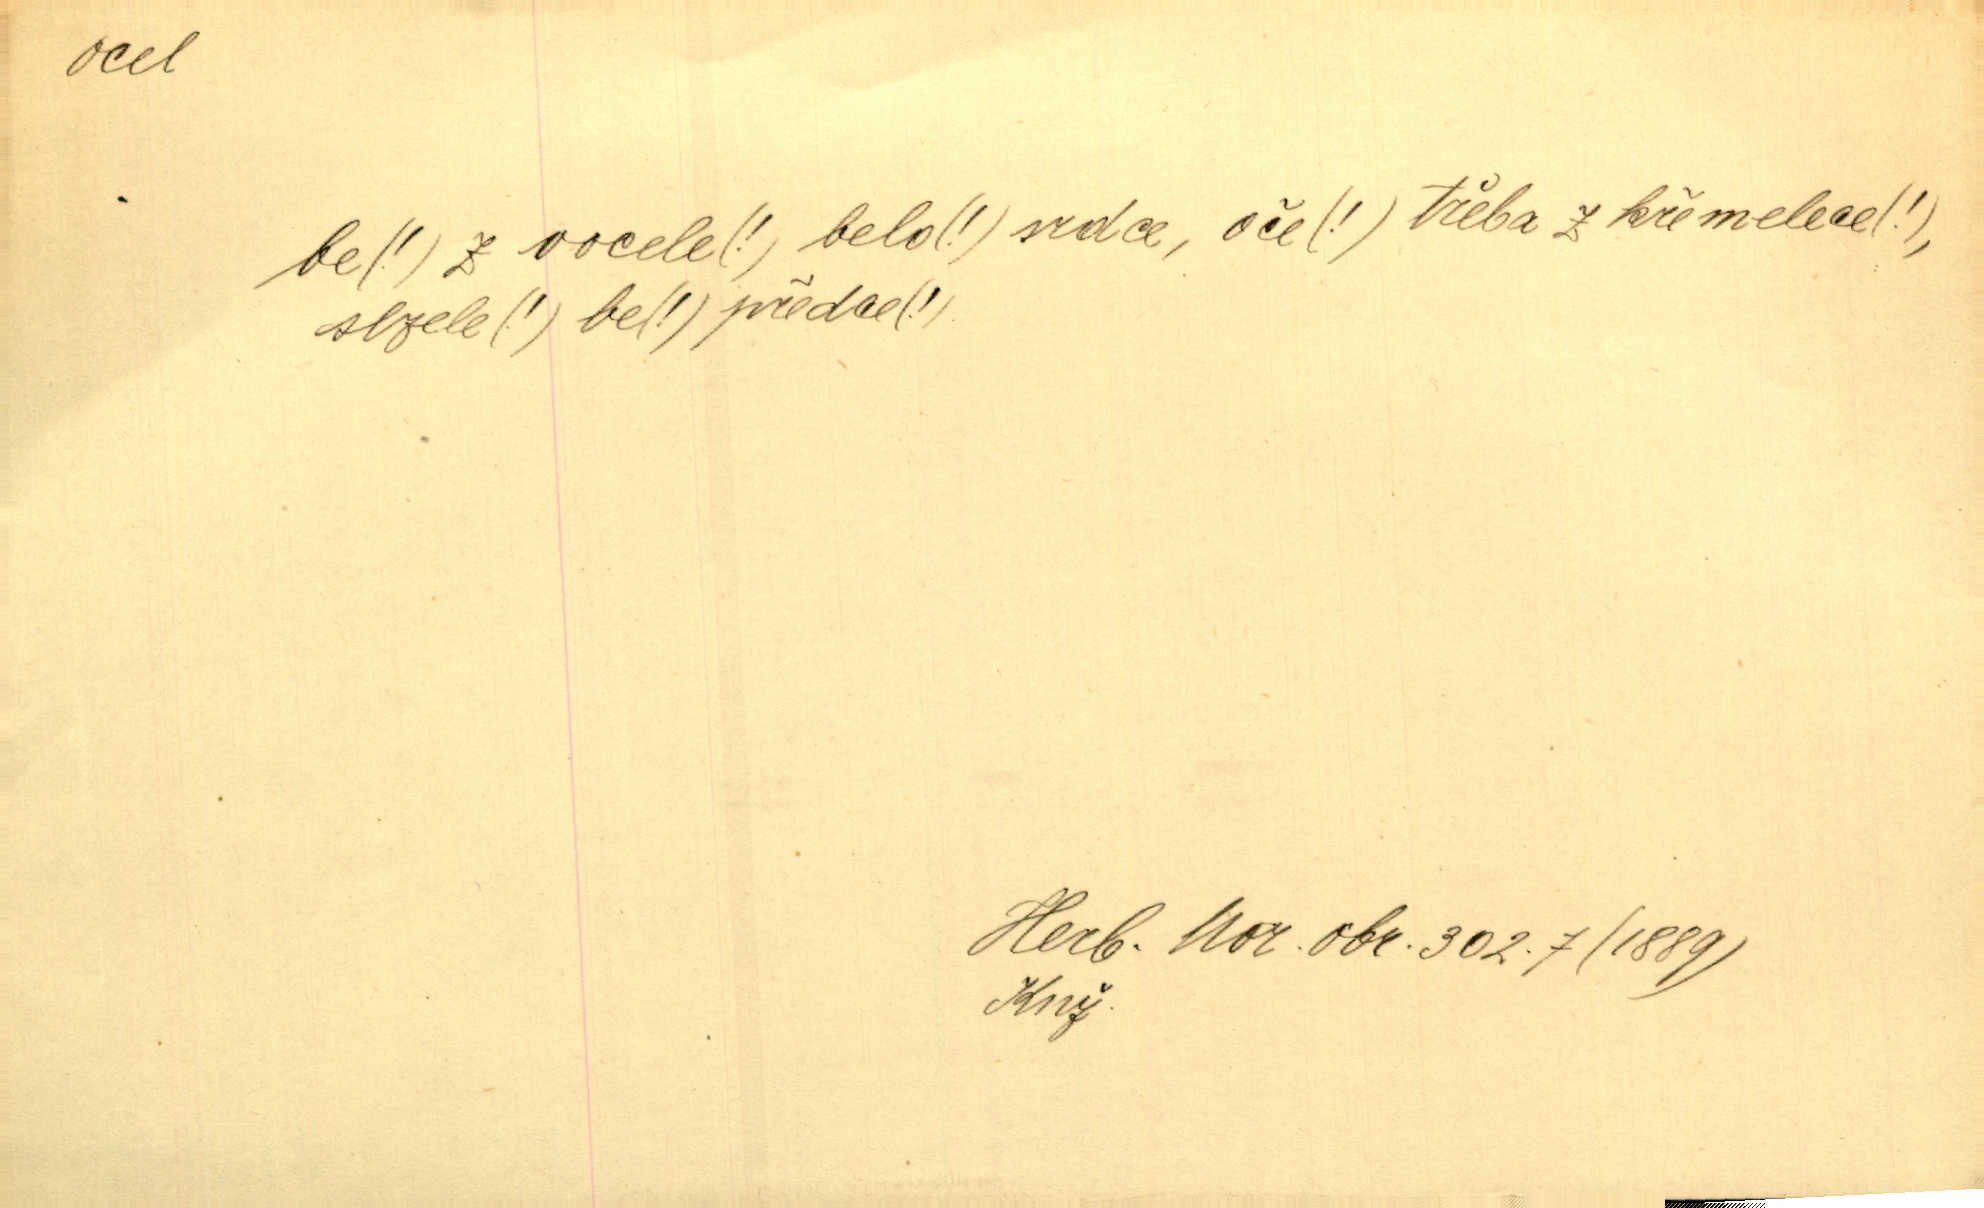 ocel
be(!) z vocele(!) belo(!) srdce, oče(!) třeba z křemelece(!),
slzele(!) be(!) předce(!)
Herb. Mor. obr. 302.7 (1889)
Knž.